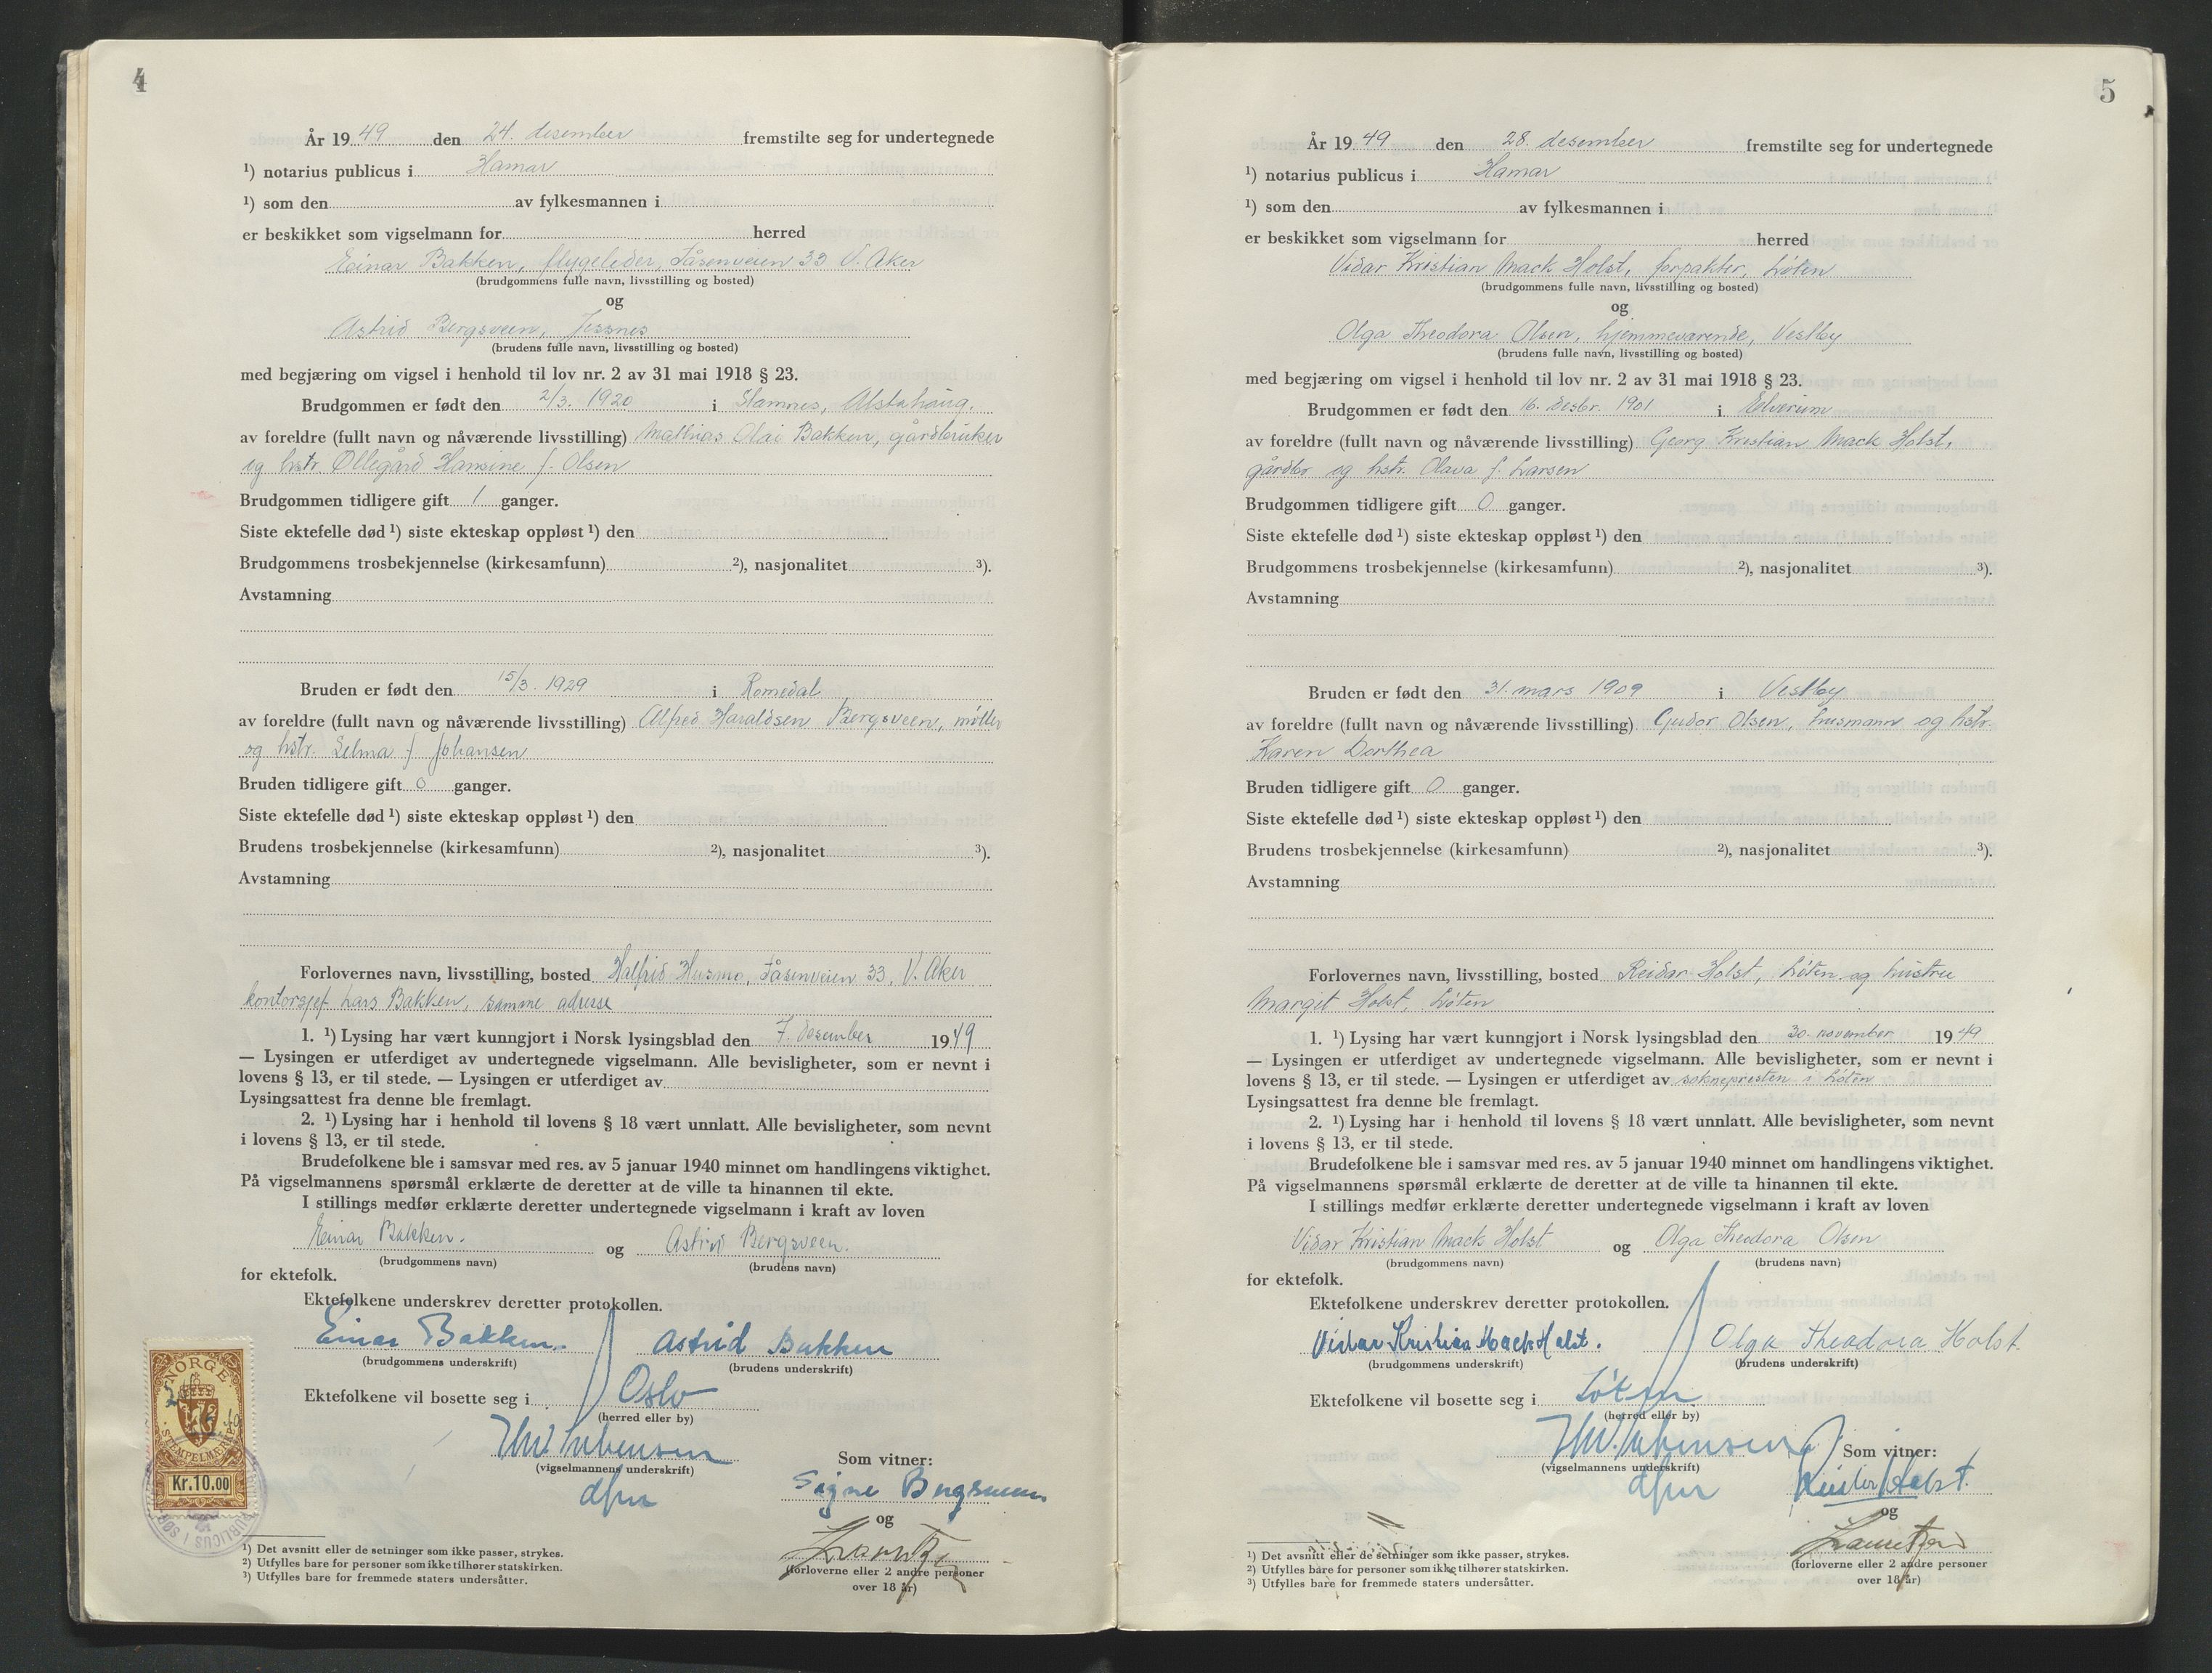 4
År 1949 den 24. desember fremstilte seg for undertegnede
¹) notarius publicus i Hamar
¹) som den av fylkesmannen i
er beskikket som vigselmann for herred
Einar Bakken, flygeleder, Tåsenveien 33 V. Aker
(brudgommens fulle navn, livsstilling og bosted)
og
Astrid Bergsveen, Jessnes
(brudens fulle navn, livsstilling og bosted)
med begjæring om vigsel i henhold til lov nr. 2 av 31 mai 1918 § 23.
Brudgommen er født den 2/3. 1920 i Stamnes, Alstahaug.
av foreldre (fullt navn og nåværende livsstilling) Mathias Olai Bakken, gårdbruker
og hstr. Ollegård Hansine f. Olsen
Brudgommen tidligere gift 1 ganger.
Siste ektefelle død ¹) siste ekteskap oppløst ¹) den
Brudgommens trosbekjennelse (kirkesamfunn) ²), nasjonalitet ³).
Avstamning
Bruden er født den 15/3. 1929 i Romedal
av foreldre (fullt navn og nåværende livsstilling) Alfred Haraldsen Bergsveen, møller
og hstr. Selma f. Johansen
Bruden tidligere gift 0 ganger.
Siste ektefelle død ¹) siste ekteskap oppløst ¹) den
Brudens trosbekjennelse (kirkesamfunn) ²), nasjonalitet ³).
Avstamning
Forlovernes navn, livsstilling, bosted Halfrid Husmo, Tåsenveien 33, V. Aker
kontorsjef Lars Bakken, samme adresse
1. ¹) Lysing har vært kunngjort i Norsk lysingsblad den 7. desember 1949
— Lysingen er utferdiget av undertegnede vigselmann. Alle bevisligheter, som er nevnt i
lovens § 13, er til stede. — Lysingen er utferdiget av
Lysingsattest fra denne ble fremlagt.
2. ¹) Lysing har i henhold til lovens § 18 vært unnlatt. Alle bevisligheter, som nevnt
i lovens § 13, er til stede.
Brudefolkene ble i samsvar med res. av 5 januar 1940 minnet om handlingens viktighet.
På vigselmannens spørsmål erklærte de deretter at de ville ta hinannen til ekte.
I stillings medfør erklærte deretter undertegnede vigselmann i kraft av loven
Einar Bakken. og Astrid Bergsveen.
(brudgommens navn) (brudens navn)
for ektefolk.
Ektefolkene underskrev deretter protokollen.
Einar Bakken. Astrid Bakken
(brudgommens underskrift) (brudens underskrift)
Ektefolkene vil bosette seg i Oslo
(herred eller by)
(vigselmannens underskrift)
Som vitner:
Signe Bergsveen
og
(forloverne eller 2 andre personer
over 18 år)
NORGE
STEMPELMERKE
Kr.10.00
PUBLICUS I SØR
¹) Det avsnitt eller de setninger som ikke passer, strykes.
²) Utfylles bare for personer som ikke tilhører statskirken.
³) Utfylles bare for fremmede staters undersåtter.
5
År 1949 den 28. desember fremstilte seg for undertegnede
¹) notarius publicus i Hamar
¹) som den av fylkesmannen i
er beskikket som vigselmann for herred
Vidar Kristian Mack Holst, forpakter, Løten
(brudgommens fulle navn, livsstilling og bosted)
og
Olga Theodora Olsen, hjemmeværende, Vestby
(brudens fulle navn, livsstilling og bosted)
med begjæring om vigsel i henhold til lov nr. 2 av 31 mai 1918 § 23.
Brudgommen er født den 16. desbr. 1901 i Elverum
av foreldre (fullt navn og nåværende livsstilling) Georg Kristian Mack Holst,
gårdbr og hstr. Olava f. Larsen
Brudgommen tidligere gift 0 ganger.
Siste ektefelle død ¹) siste ekteskap oppløst ¹) den
Brudgommens trosbekjennelse (kirkesamfunn) ²), nasjonalitet ³).
Avstamning
Bruden er født den 31. mars 1909 i Vestby
av foreldre (fullt navn og nåværende livsstilling) Gudor Olsen, husmann og hstr.
Karen Dorthea
Bruden tidligere gift 0 ganger.
Siste ektefelle død ¹) siste ekteskap oppløst ¹) den
Brudens trosbekjennelse (kirkesamfunn) ²), nasjonalitet ³).
Avstamning
Forlovernes navn, livsstilling, bosted Reidar Holst, Løten og hustru
Margit Holst, Løten
1. ¹) Lysing har vært kunngjort i Norsk lysingsblad den 30. november 1949
— Lysingen er utferdiget av undertegnede vigselmann. Alle bevisligheter, som er nevnt i
lovens § 13, er til stede. — Lysingen er utferdiget av soknepresten i Løten
Lysingsattest fra denne ble fremlagt.
2. ¹) Lysing har i henhold til lovens § 18 vært unnlatt. Alle bevisligheter, som nevnt
i lovens § 13, er til stede.
Brudefolkene ble i samsvar med res. av 5 januar 1940 minnet om handlingens viktighet.
På vigselmannens spørsmål erklærte de deretter at de ville ta hinannen til ekte.
I stillings medfør erklærte deretter undertegnede vigselmann i kraft av loven
Vidar Kristian Mack Holst og Olga Theodora Olsen
(brudgommens navn) (brudens navn)
for ektefolk.
Ektefolkene underskrev deretter protokollen.
Vidar Kristian Mack Holst. Olga Theodora Holst.
(brudgommens underskrift) (brudens underskrift)
Ektefolkene vil bosette seg i Løten
(herred eller by)
(vigselmannens underskrift)
Som vitner:
Reidar Holst.
og
(forloverne eller 2 andre personer
over 18 år)
¹) Det avsnitt eller de setninger som ikke passer, strykes.
²) Utfylles bare for personer som ikke tilhører statskirken.
³) Utfylles bare for fremmede staters undersåtter.